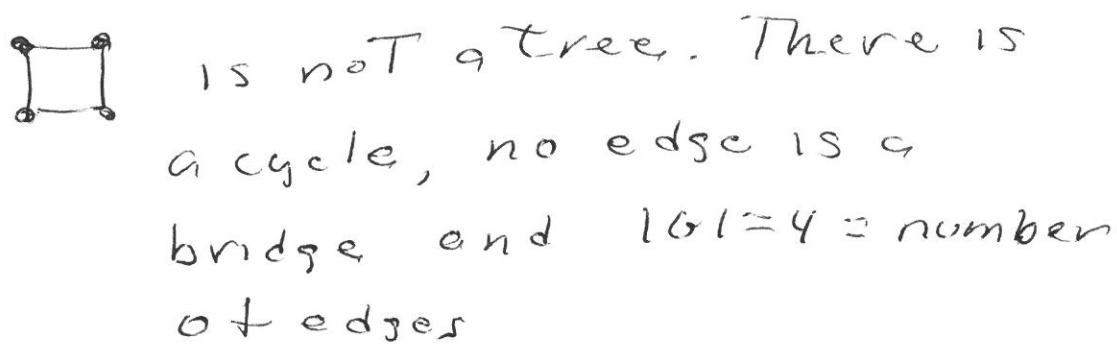 is not a tree. There is
a cycle, no edge is a
bridge and |G|=4 = number
of edges